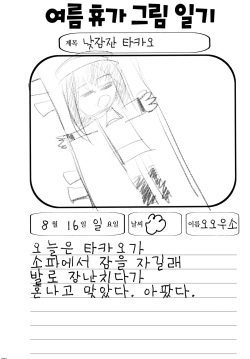 여름 휴가 그림 일기
제목 낮잠잔 타카오
8월 16일 일요일 날씨 이름 오오우소
오늘은 타카오가
소파에서 잠을 자길래
발로 장난치다가
혼나고 맞았다. 아팠다.